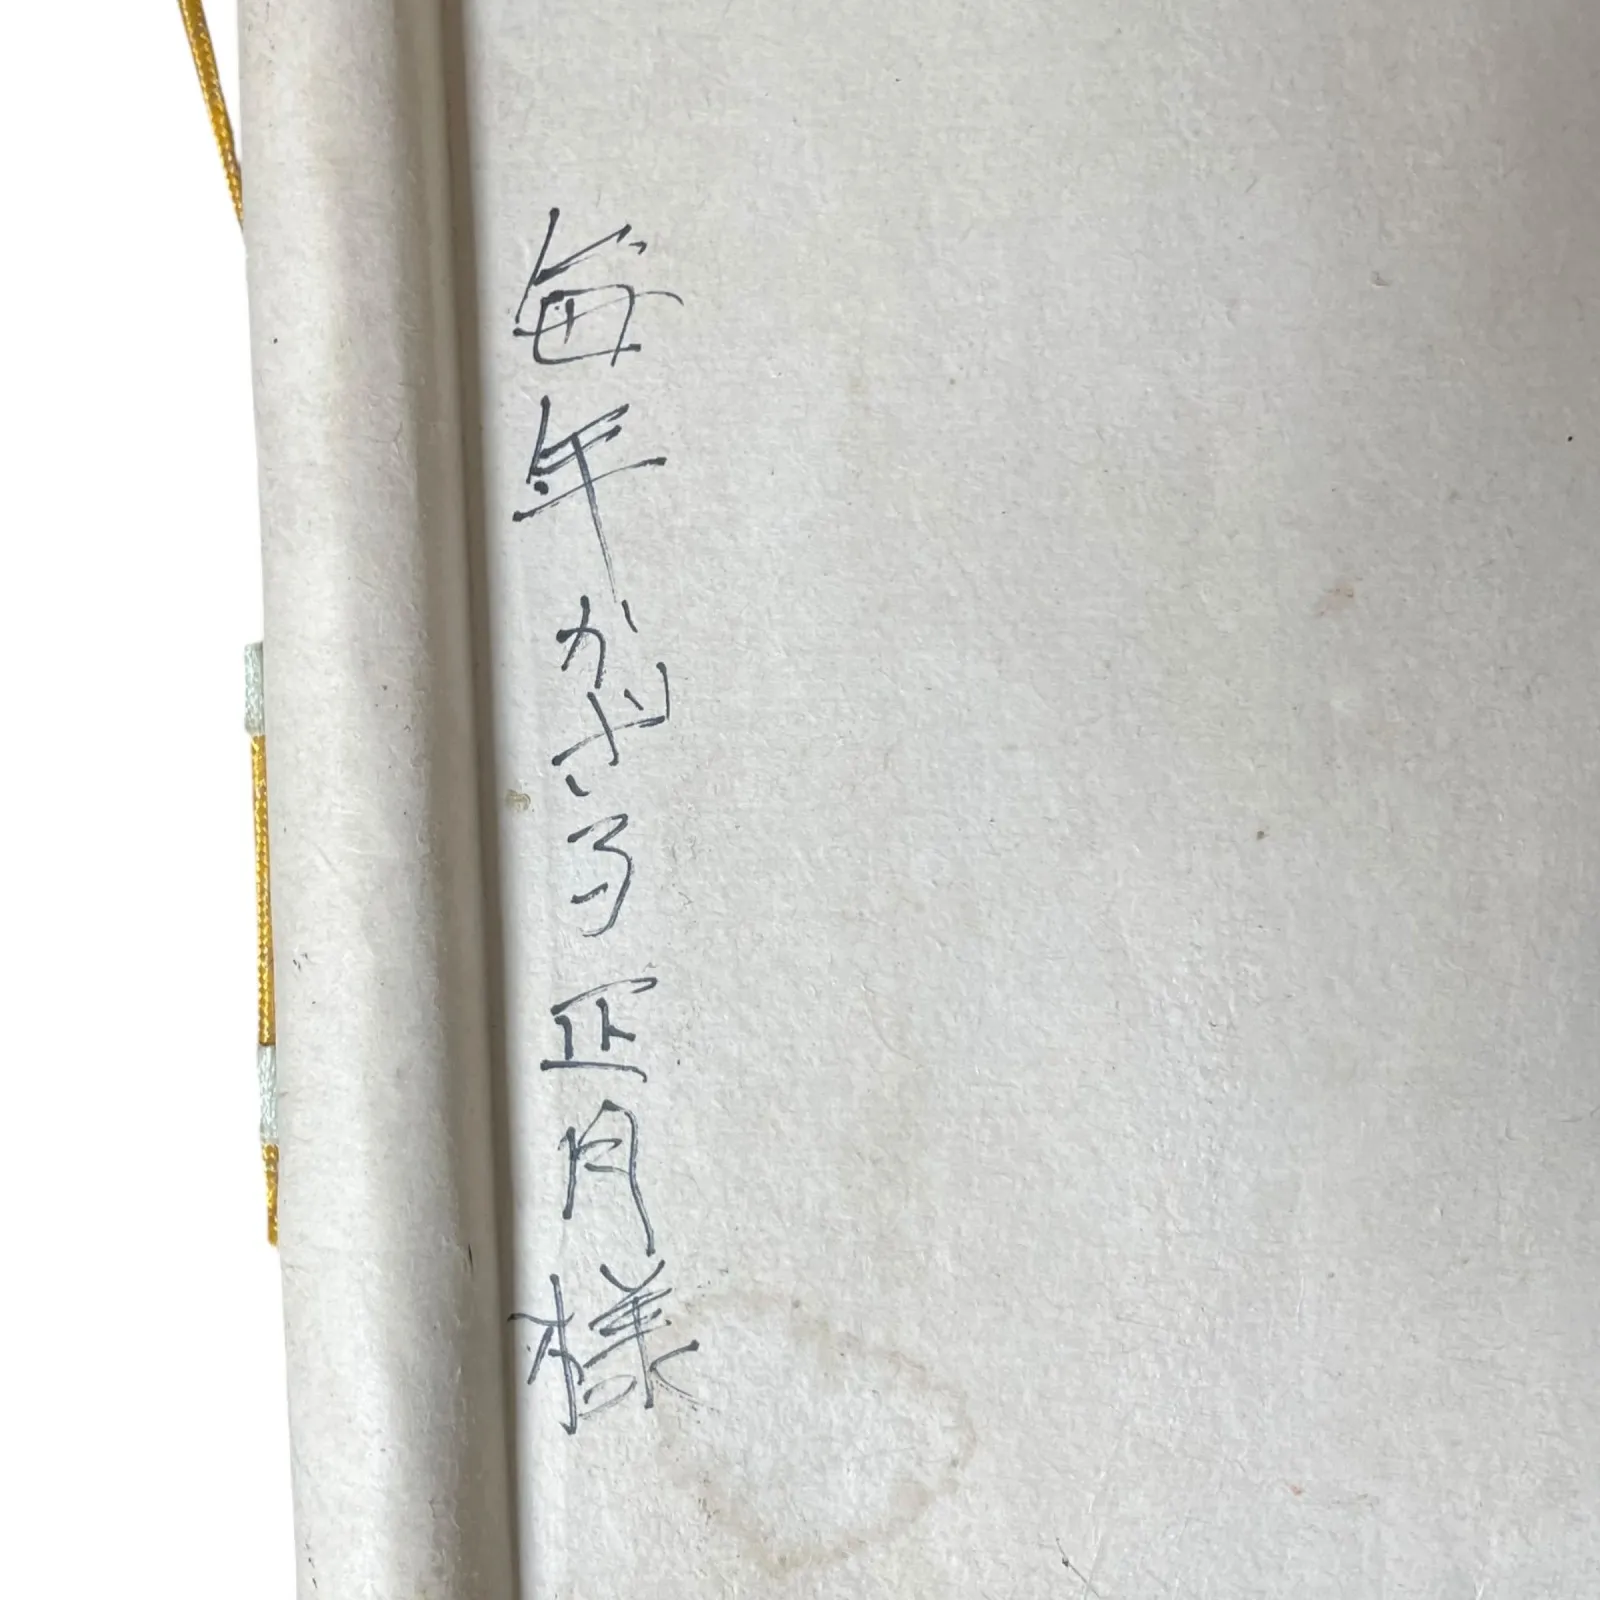 毎年かざる正月様